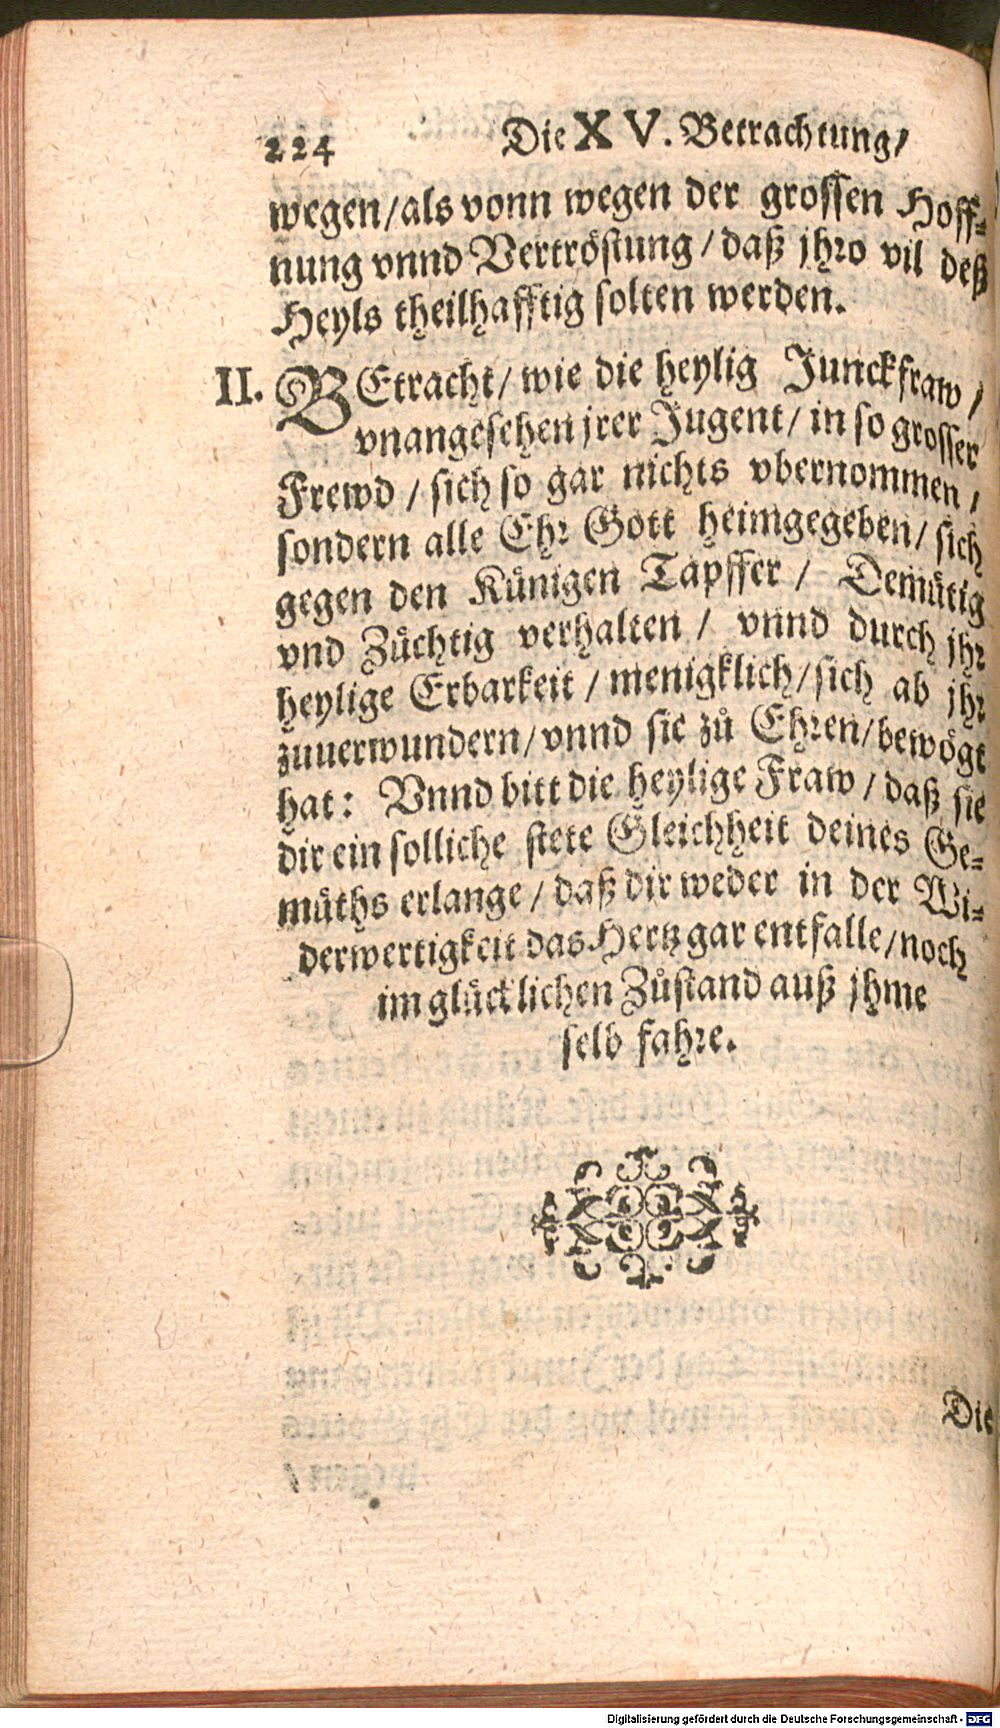 224 Die XV. Betrachtung/
wegen/als vonn wegen der grossen Hoff-
nung vnnd Vertröstung/daß jhro vil deß
Heyls theilhafftig solten werden.
II. BEtracht/ wie die heylig Junckfraw/
vnangesehen jrer Jugent/ in so grosser
Frewd / sich so gar nichts vbernommen/
sondern alle Ehr Gott heimgegeben/ sich
gegen den Künigen Tapffer / Demütig
vnd Zůchtig verhalten / vnnd durch jhr
heylige Erbarkeit / menigklich/sich ab jhr
zuuerwundern/vnnd sie zů Ehren/bewögt
hat: Vnnd bitt die heylige Fraw / daß sie
dir ein solliche stete Gleichheit deines Ge-
müths erlange / daß dir weder in der Wi-
derwertigkeit das Hertz gar entfalle/noch
im glücklichen Zůstand auß jhme
selb fahre.
Die
Digitalisierung gefördert durch die Deutsche Forschungsgemeinschaft - DFG